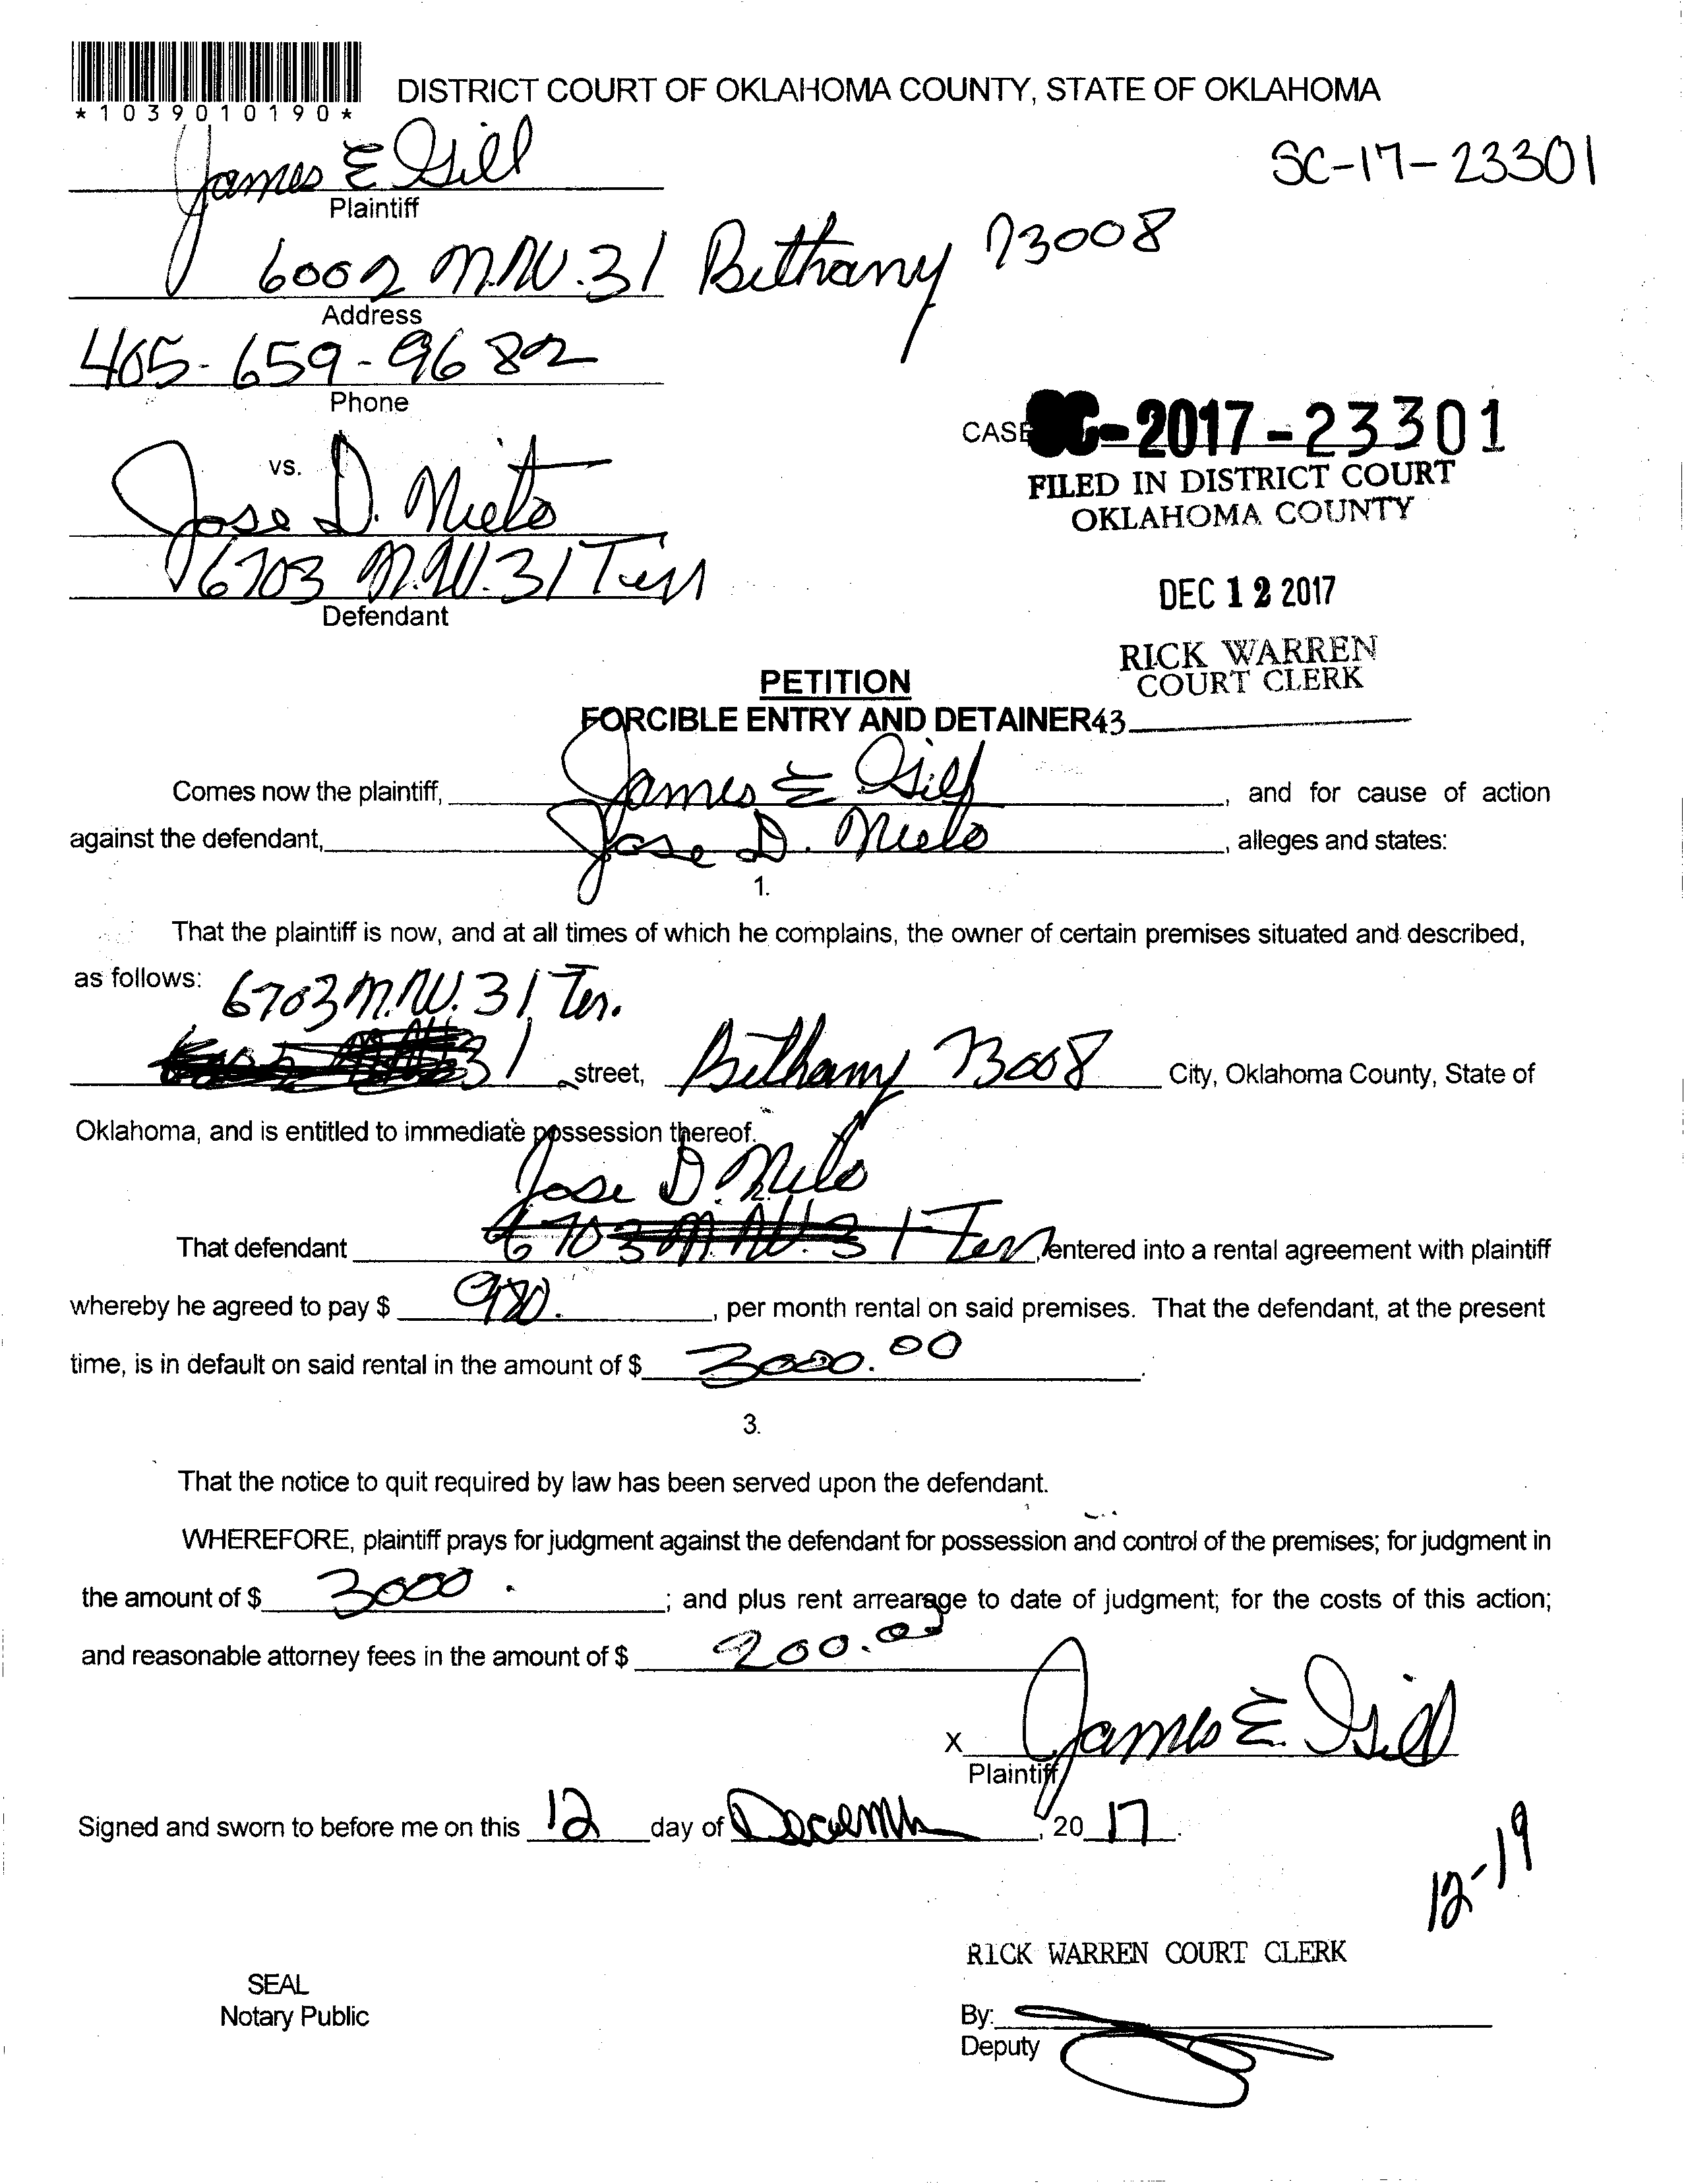 *1039010190*
DISTRICT COURT OF OKLAHOMA COUNTY, STATE OF OKLAHOMA
James E Gill
SC-17-23301
Plaintiff
6002 N.W. 31 Bethany 73008
Address
405-659-9682
Phone
CASE C-2017-23301
FILED IN DISTRICT COURT
OKLAHOMA COUNTY
vs.
Jose D. Nieto
6703 N.W. 31 Terr
Defendant
DEC 12 2017
RICK WARREN
COURT CLERK
PETITION
FORCIBLE ENTRY AND DETAINER43
Comes now the plaintiff, James E Gill, and for cause of action
against the defendant, Jose D. Nieto, alleges and states:
1.
That the plaintiff is now, and at all times of which he complains, the owner of certain premises situated and described,
as follows: 6703 N.W. 31 Ter.
31 street, Bethany 73008 City, Oklahoma County, State of
Oklahoma, and is entitled to immediate possession thereof.
Jose D. Nieto
That defendant 6703 N.W. 31 Terr, entered into a rental agreement with plaintiff
whereby he agreed to pay $ 980., per month rental on said premises. That the defendant, at the present
time, is in default on said rental in the amount of $ 3000.00.
3.
That the notice to quit required by law has been served upon the defendant.
WHEREFORE, plaintiff prays for judgment against the defendant for possession and control of the premises; for judgment in
the amount of $ 3000.; and plus rent arrearage to date of judgment; for the costs of this action;
and reasonable attorney fees in the amount of $ 200.00
x James E. Gill
Plaintiff
Signed and sworn to before me on this 12 day of Decemb, 20 17.
12-19
RICK WARREN COURT CLERK
SEAL
Notary Public
By:
Deputy